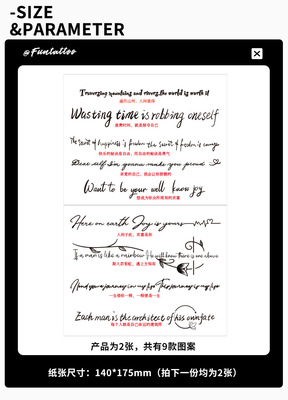 -SIZE
&PARAMETER
@Funtattoo
Traversing mountains and rivers, the world is worth it
遍历山河，人间值得
Wasting time is robbing oneself
浪费时间，就是掠夺自己
The secret of happiness is freedom the secret of freedom is courage
快乐的秘诀是自由，而自由的秘诀是勇气
Dear self I'm gonna make you proud
亲爱的自己，我会让你骄傲的
Want to be your well know joy
想成为你众所周知的欢喜
Here on earth Joy is yours
人间于此，欢喜是你
If a man is like a rainbow He will know there is one above
斯人若彩虹，遇上方知有
And you a journey in my life
一生借你一程，一程便是一生
Each man is the architect of his own fate
每个人都是自己命运的建筑师
产品为2张，共有9款图案
纸张尺寸：140*175mm（拍下一份均为2张）